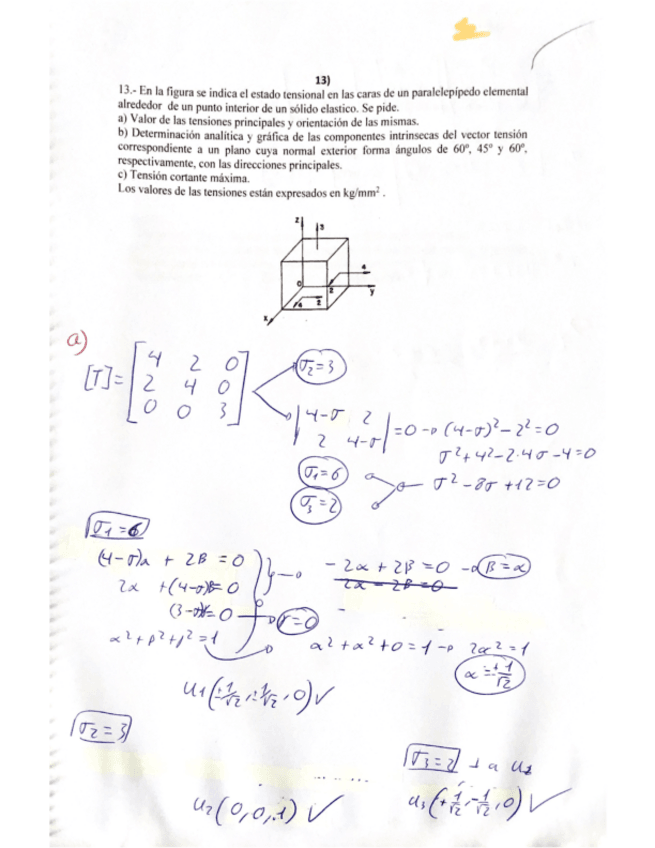 13)
13.- En la figura se indica el estado tensional en las caras de un paralelepípedo elemental
alrededor de un punto interior de un sólido elastico. Se pide.
a) Valor de las tensiones principales y orientación de las mismas.
b) Determinación analítica y gráfica de las componentes intrinsecas del vector tensión
correspondiente a un plano cuya normal exterior forma ángulos de 60º, 45º y 60º,
respectivamente, con las direcciones principales.
c) Tensión cortante máxima.
Los valores de las tensiones están expresados en kg/mm².
z 3
4
0 2 y
4 2
x
a)
[T]= [4 2 0
2 4 0
0 0 3]
σ2=3
|4-σ 2
2 4-σ| =0 → (4-σ)²-2²=0
σ²+4²-2·4σ-4=0
σ1=6
σ3=2
σ²-8σ+12=0
σ1=6
(4-σ)α + 2β =0
2α +(4-σ)β=0
(3-σ)γ=0
α²+β²+γ²=1
-2α+2β=0 → β=α
2α-2β=0
γ=0
α²+α²+0=1 → 2α²=1
α=±1/√2
u1(±1/√2, ±1/√2, 0) ✓
σ2=3
u2(0,0,1) ✓
σ3=2 ⊥ a u1
u3(+1/√2, -1/√2, 0) ✓